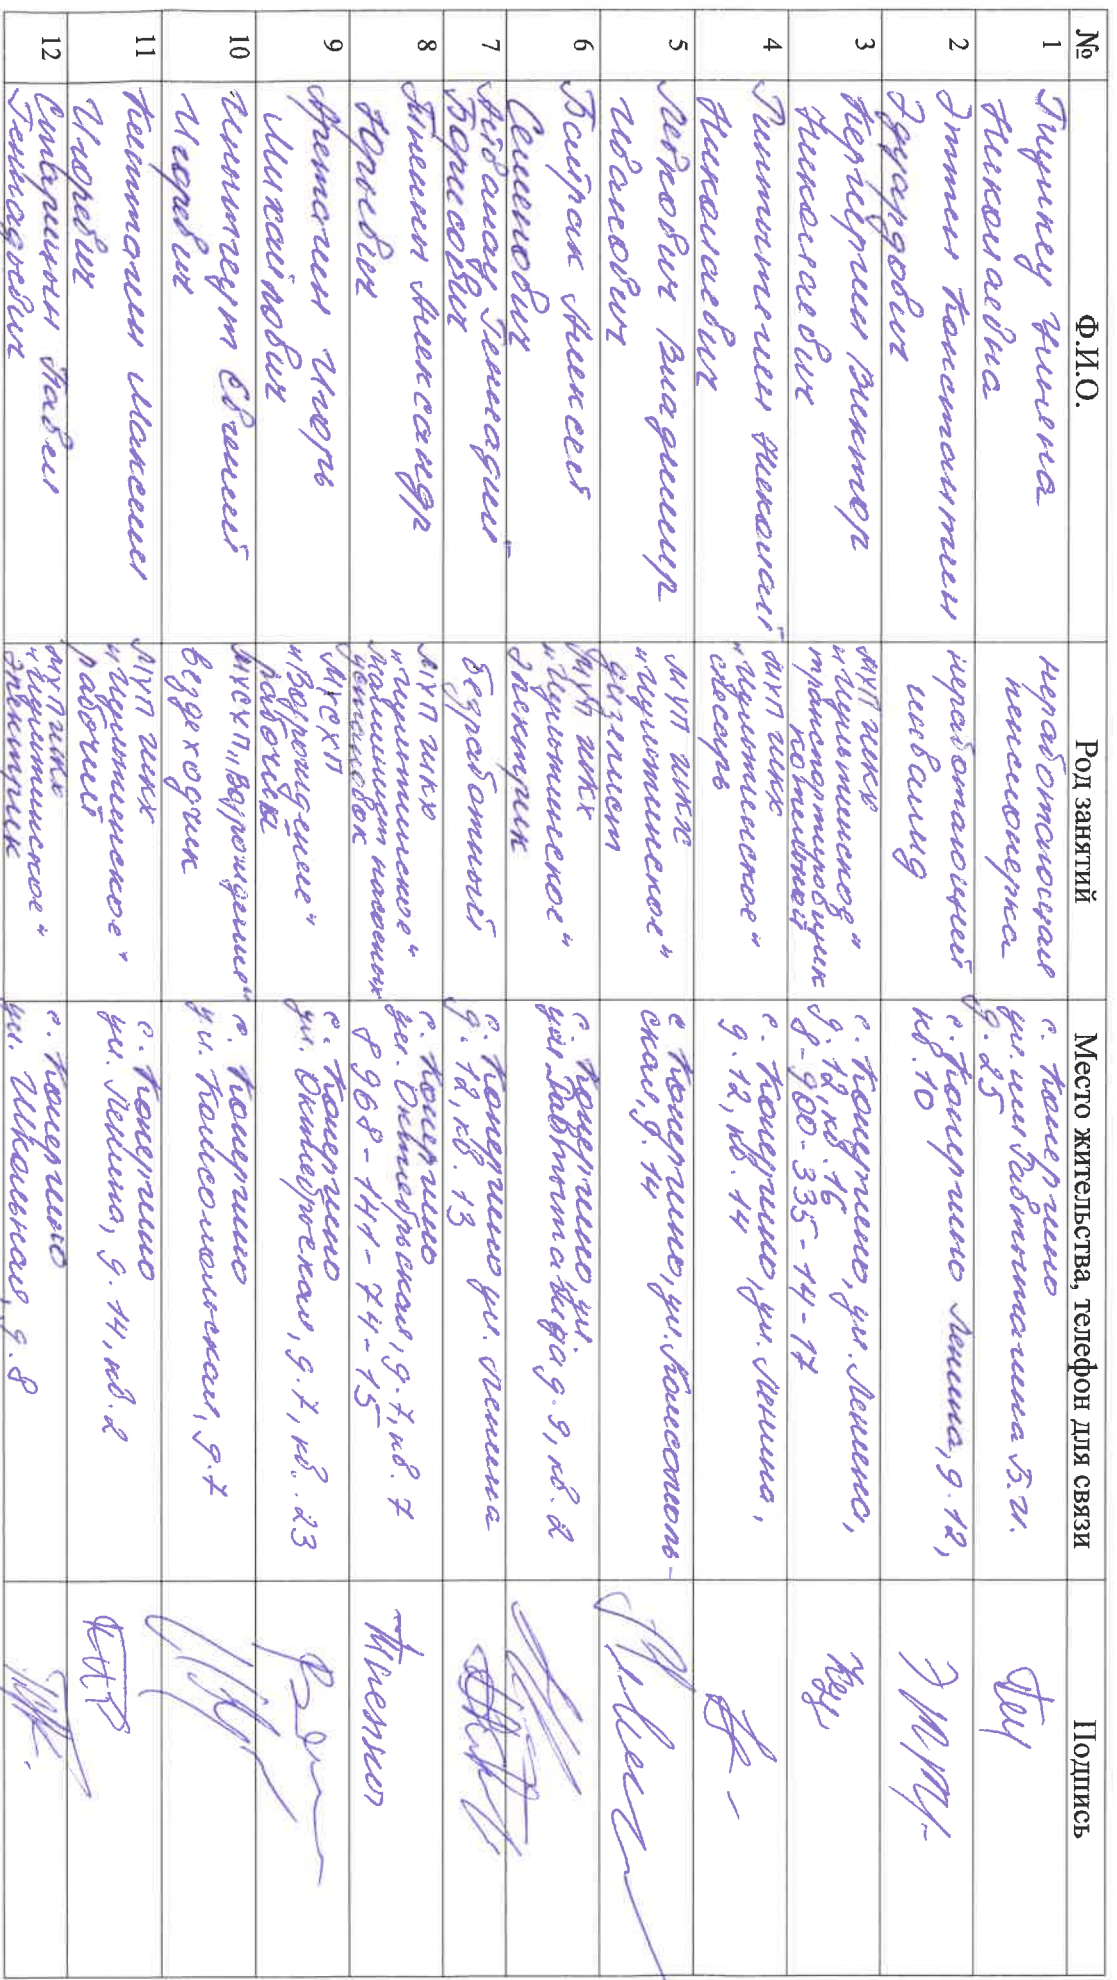 № Ф.И.О. Род занятий Место жительства, телефон для связи Подпись
1
Николаевна
неработающая
пенсионерка
с. Конергино
ул. им. Равтытагина В.И.
д. 25
2
Эттын Константин
Эдуардович
неработающий
инвалид
с. Конергино Ленина, д. 12,
кв. 10
3
Кергергин Виктор
Николаевич
МУП ЖКХ
"Иультинское"
транспортировщик
котельной
с. Конергино, ул. Ленина,
д. 12, кв. 16
8-900-335-14-17
4
Николай
Николаевич
МУП ЖКХ
"Иультинское"
слесарь
с. Конергино, ул. Ленина,
д. 12, кв. 14
5
Левкович Владимир
Иванович
МУП ЖКХ
"Иультинское"
дизелист
с Конергино, ул. Комсомоль-
ская, д. 14
6
Байрак Алексей
Семенович
МУП ЖКХ
"Иультинское"
электрик
с. Конергино, ул.
д. 9, кв. 2
7
Геннадий
Борисович
безработный
с. Конергино ул. Ленина
д. 12, кв. 13
8
Тненни Александр
Юрьевич
МУП ЖКХ
"Иультинское"
машинист насосных
установок
с. Конергино
ул. Октябрьская, д. 7, кв. 7
8 968-141-74-15
9
Игорь
Михайлович
МУСХП
"Возрождение"
рабочий
с. Конергино
ул. Октябрьская, д. 7, кв. 23
10
Евгений
Игоревич
МУСХП "Возрождение"
вездеходчик
с. Конергино
ул. Комсомольская, д. 7
11
Максим
Игоревич
МУП ЖКХ
"Иультинское"
рабочий
с. Конергино
ул. Ленина, д. 14, кв. 2
12
Павел
Геннадьевич
МУП ЖКХ
"Иультинское"
электрик
с. Конергино
ул. Школьная, д. 8